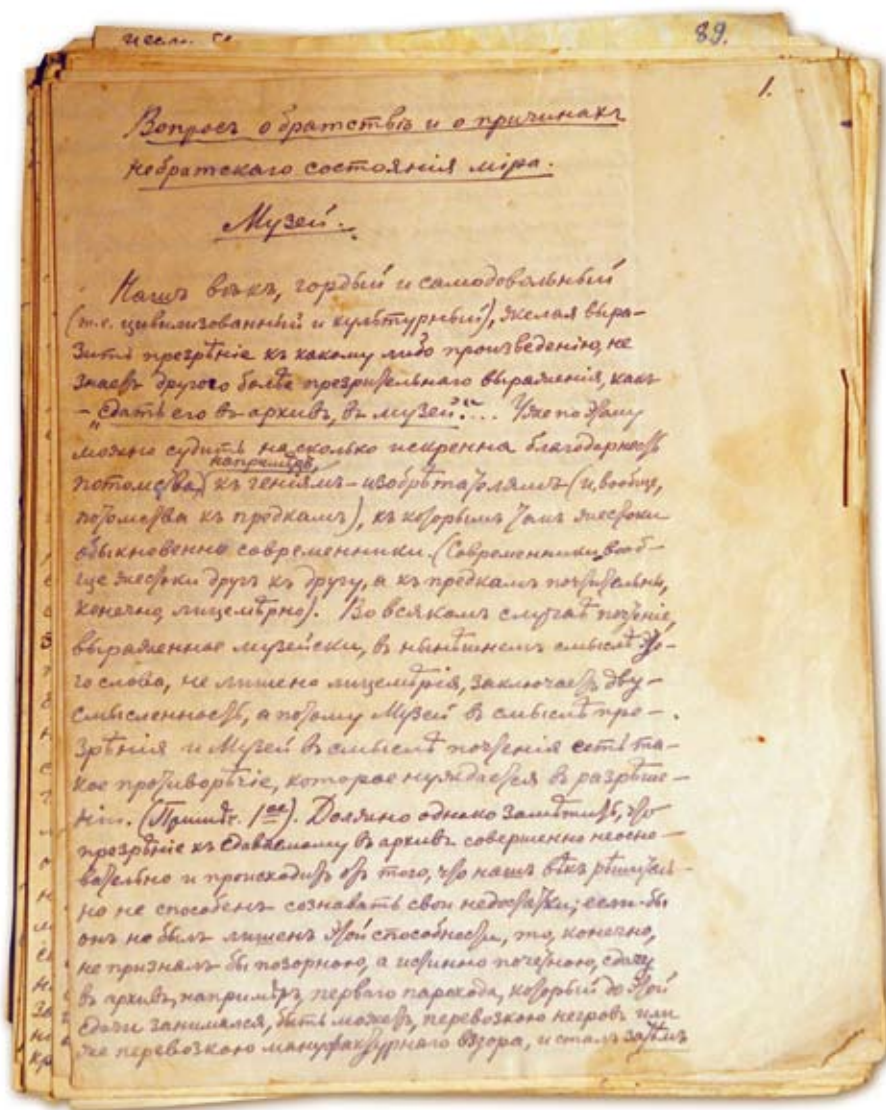 89.
1.
Вопросъ о братствѣ и о причинахъ
небратскаго состоянія міра.
Музей.
Нашъ вѣкъ, гордый и самодовольный
(т.е. цивилизованный и культурный), желая выра-
зить презрѣніе къ какому либо произведенію, не
знаетъ другого болѣе презрительнаго выраженія, какъ
– „сдать его въ архивъ, въ музей“... Уже по этому
можно судить на сколько искренна благодарность
напримѣръ,
потомства, къ геніямъ-изобрѣтателямъ (и, вообще,
потомства къ предкамъ), къ которымъ такъ жестоки
обыкновенно современники. (Современники вооб-
ще жестоки другъ къ другу, а къ предкамъ почтительны,
конечно, лицемѣрно). Во всякомъ случаѣ почтеніе,
выраженное музейски, въ нынѣшнемъ смыслѣ это-
го слова, не лишено лицемѣрія, заключаетъ дву-
смысленность, а потому Музей въ смыслѣ пре-
зрѣнія и Музей въ смыслѣ почтенія есть та-
кое противорѣчіе, которое нуждается въ разрѣше-
ніи. (Примѣч. 1ое). Должно однако замѣтить, что
презрѣніе къ сдаваемому въ архивъ совершенно неосно-
вательно и происходитъ отъ того, что нашъ вѣкъ рѣшитель-
но не способенъ сознавать свои недостатки; если-бы
онъ не былъ лишенъ этой способности, то, конечно,
не призналъ бы позорною, а истинно почетною, сдачу
въ архивъ, напримѣръ, перваго парохода, который до этой
сдачи занимался, быть можетъ, перевозкою негровъ или
же перевозкою мануфактурнаго вздора, и сталъ затѣмъ